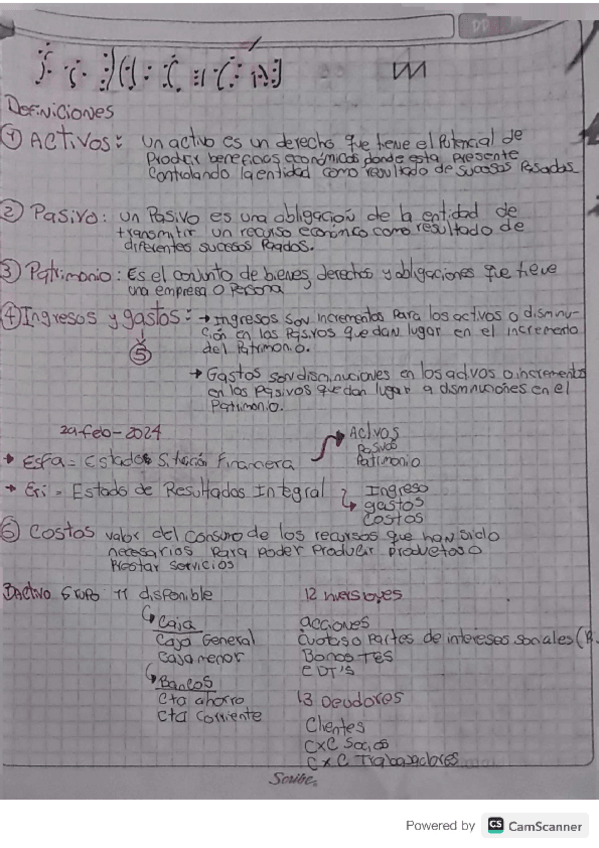 Definiciones
① Activos: un activo es un derecho que tiene el Potencial de
Producir beneficios económicos donde esta presente
Controlando la entidad como resultado de sucesos Pasados
② Pasivo: un Pasivo es una obligación de la entidad de
transmitir un recurso económico como resultado de
diferentes sucesos Pagados.
③ Patrimonio: Es el conjunto de bienes, derechos y obligaciones que tiene
una empresa o Persona
④ Ingresos y gastos: → Ingresos son incrementos Para los activos o disminu-
ción en los Pasivos que dan lugar en el incremento
del Patrimonio.
⑤
→ Gastos son disminuciones en los activos o incremento
en los Pasivos que dan lugar a disminuciones en el
Patrimonio.
29-feb-2024
→ Esfa = Estados Situación Financiera
Activos
Pasivos
Patrimonio
→ Eri = Estado de Resultados Integral
Ingreso
gastos
Costos
⑥ Costos valor del consumo de los recursos que han sido
necesarios Para poder Producir productos o
Prestar servicios
Activo Grupo 11 disponible
Caja
Caja General
Caja menor
Bancos
Cta ahorro
Cta Corriente
12 inversiones
acciones
Cuotas o Partes de intereses sociales (
Bonos TES
CDT's
13 Deudores
Clientes
CxC Socios
CxC Trabajadores
Scribe
Powered by CS CamScanner